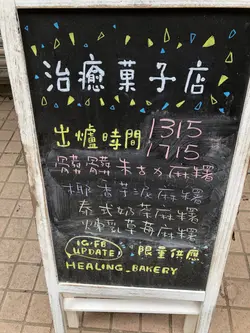 治癒菓子店
出爐時間 1315
1715
髒髒朱古力麻糬
椰香芋泥麻糬
泰式奶茶麻糬
煉乳草莓麻糬
IG.FB
UPDATE
限量供應
HEALING_BAKERY